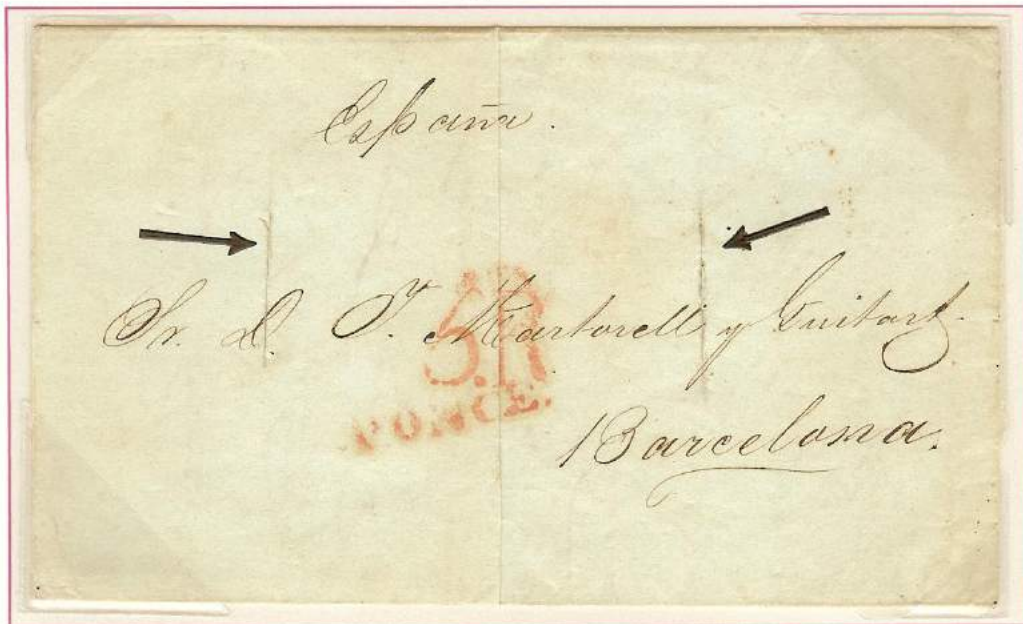 España.
Sr. D. J. Martorell y Guitart.
5.R
PONCE.
Barcelona.